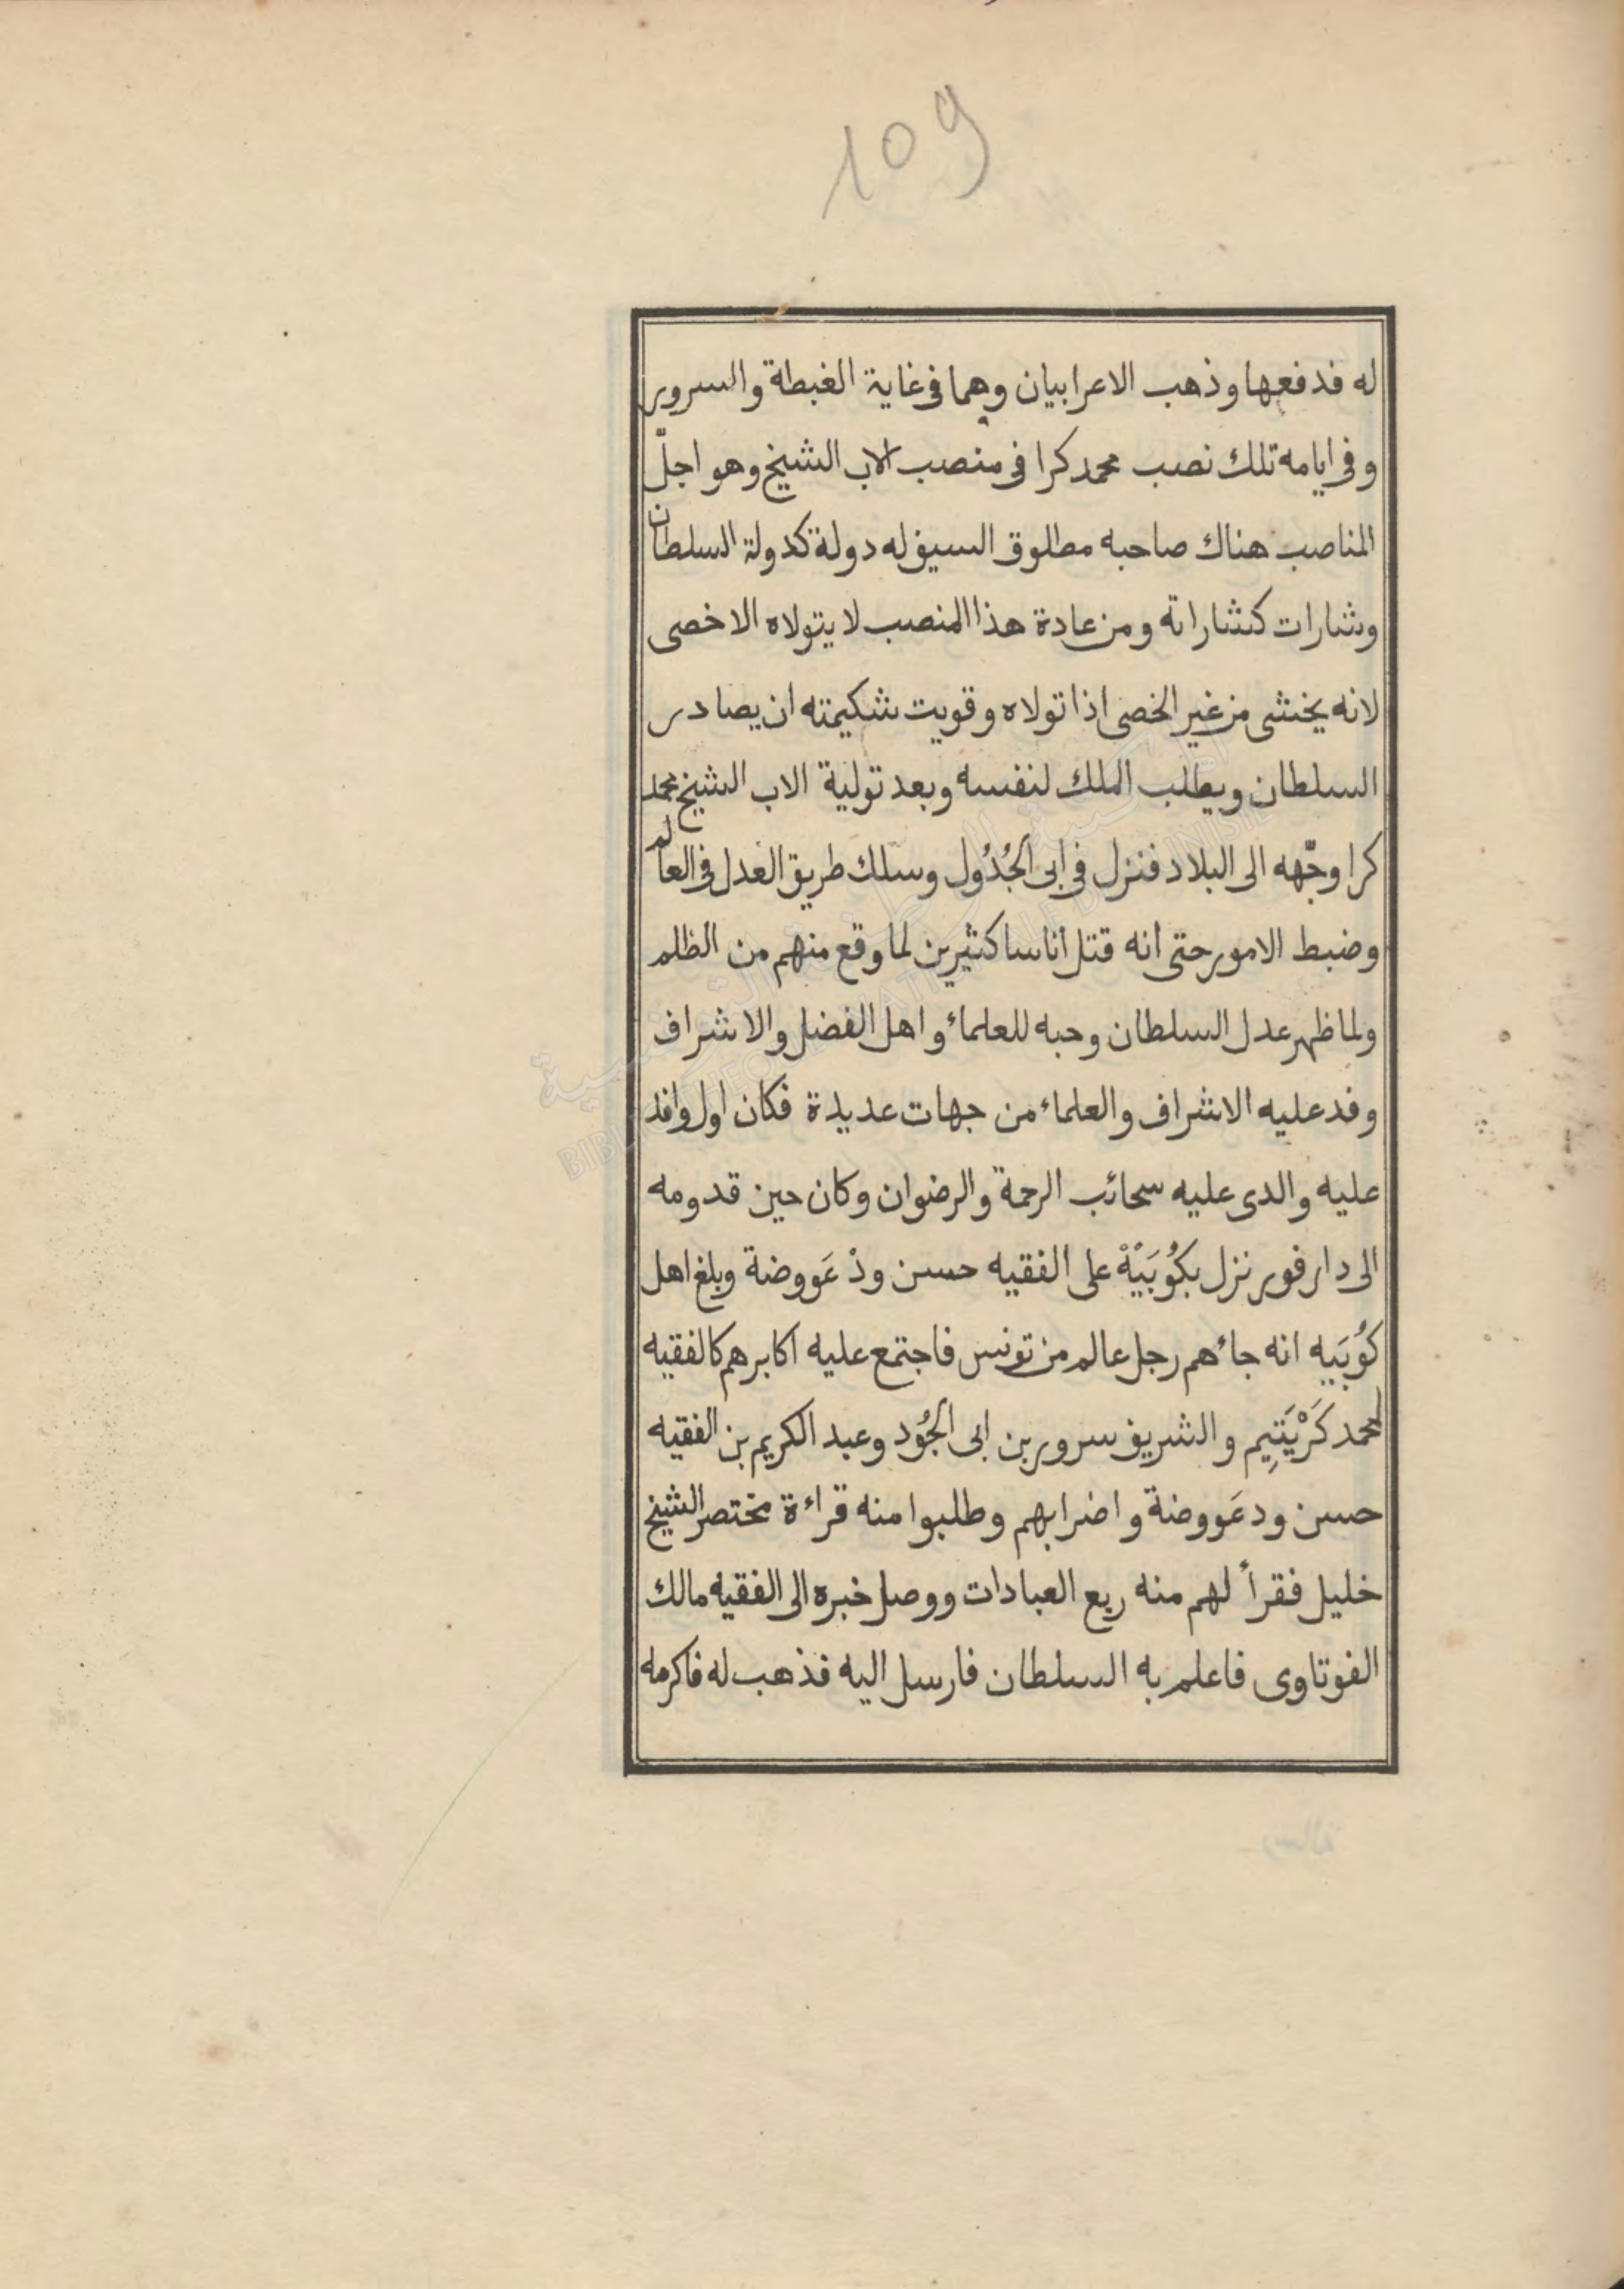 109
له فدفعها وذهب الاعرابيان وهما فى غاية الغبطة والسرور
وفى ايامه تلك نصب محمد كرا فى منصب الاب الشيخ وهو اجلّ
المناصب هناك صاحبه مطلوق السيف له دولة كدولة السلطان
وشارات كشاراته ومن عادة هذا المنصب لا يتولاه الا خصى
لانه يخشى من غير الخصى اذا تولاه وقويت شكيمته ان يصادر
السلطان ويطلب الملك لنفسه وبعد تولية الاب الشيخ محمد
كرا وجّهه الى البلاد فنزل فى ابى الجُدُول وسلك طريق العدل فى العالم
وضبط الامور حتى أنه قتل أناسا كثيرين لما وقع منهم من الظلم
ولما ظهر عدل السلطان وحبه للعلماء واهل الفضل والاشراف
وفد عليه الاشراف والعلماء من جهات عديدة فكان اول وافد
عليه والدى عليه سحائب الرحمة والرضوان وكان حين قدومه
الى دار فور نزل بكُوبَيْهْ على الفقيه حسن ودْ عَووضة وبلغ اهل
كُوبَيه انه جاءهم رجل عالم من تونس فاجتمع عليه اكابرهم كالفقيه
محمد كَرْيَتِيم والشريف سرور بن ابى الجُود وعبد الكريم بن الفقيه
حسن ود عَووضة واضرابهم وطلبوا منه قراءة مختصر الشيخ
خليل فقرأ لهم منه ربع العبادات ووصل خبره الى الفقيه مالك
الفوتاوى فاعلم به السلطان فارسل اليه فذهب له فاكرمه